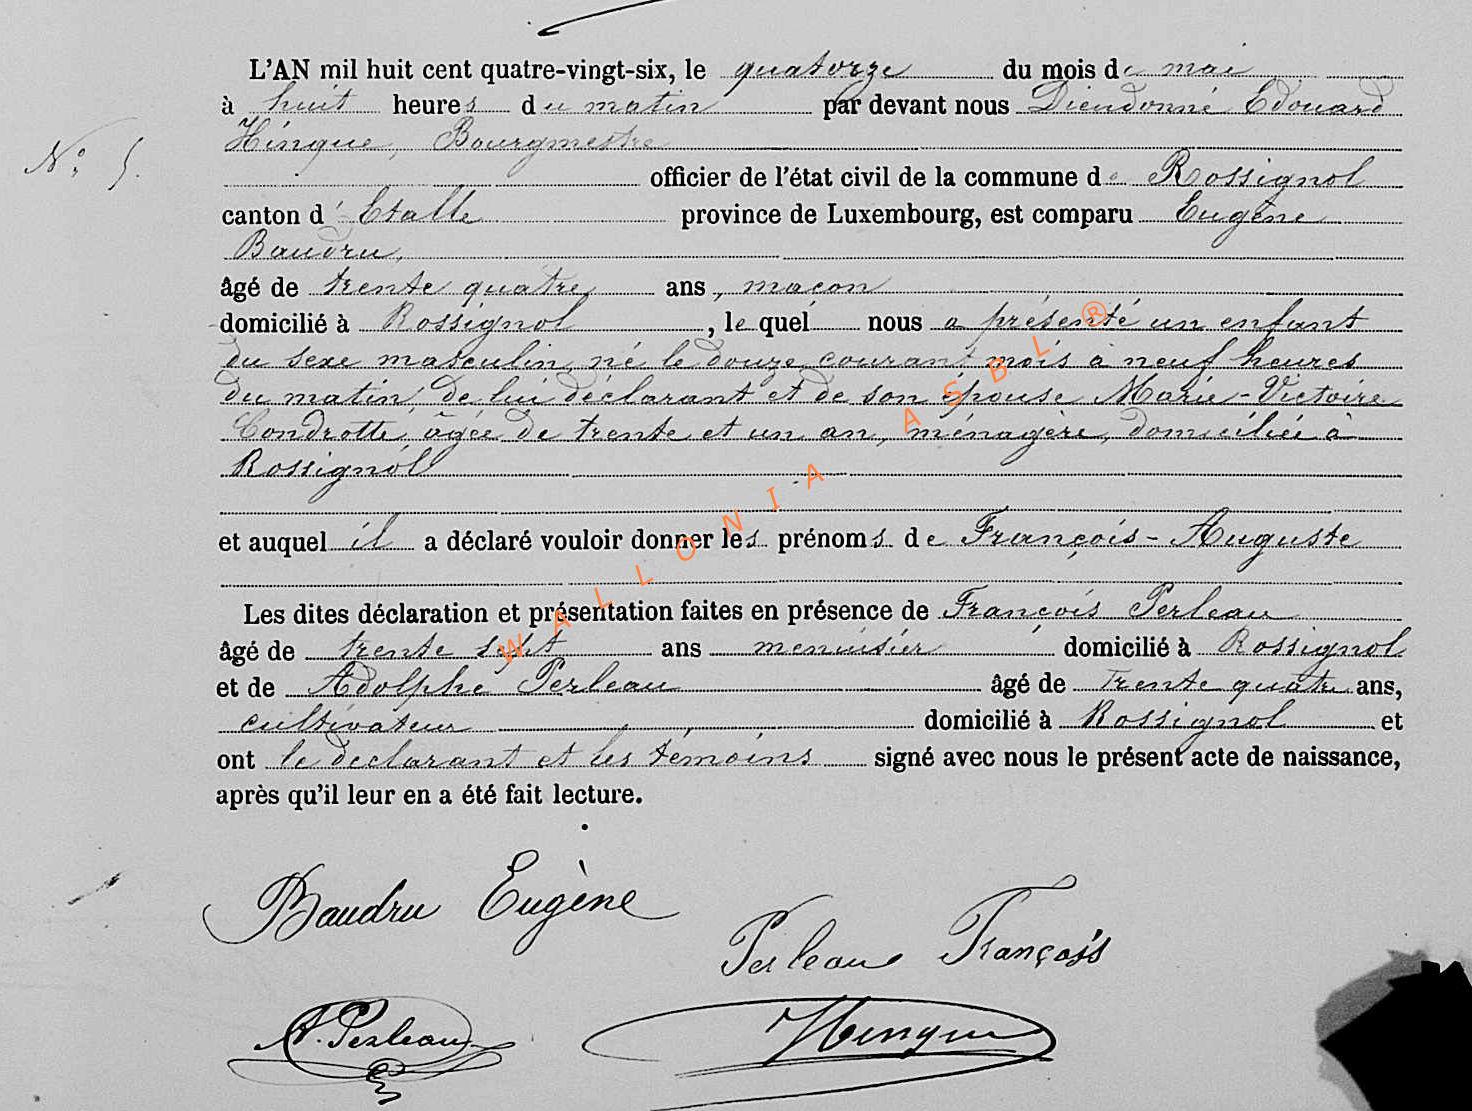 L'AN mil huit cent quatre-vingt-six, le quatorze du mois de mai
à huit heures du matin par devant nous Dieudonné Edouard
Hinque, Bourgmestre
N° 5.
officier de l'état civil de la commune de Rossignol
canton d'Etalle province de Luxembourg, est comparu Eugène
Baudru,
âgé de trente quatre ans, maçon
domicilié à Rossignol, lequel nous a présenté un enfant
du sexe masculin, né le douze courant mois à neuf heures
du matin, de lui déclarant et de son épouse Marie-Victoire
Condrotte, âgée de trente et un an, ménagère, domiciliée à
Rossignol
et auquel il a déclaré vouloir donner les prénoms de François-Auguste
Les dites déclaration et présentation faites en présence de François Perleau
âgé de trente sept ans menuisier domicilié à Rossignol
et de Adolphe Perleau âgé de trente quatre ans,
cultivateur domicilié à Rossignol et
ont le déclarant et les témoins signé avec nous le présent acte de naissance,
après qu'il leur en a été fait lecture.
Baudru Eugène
Perleau François
A. Perleau
Hinque
WALLONIA ASBL ®